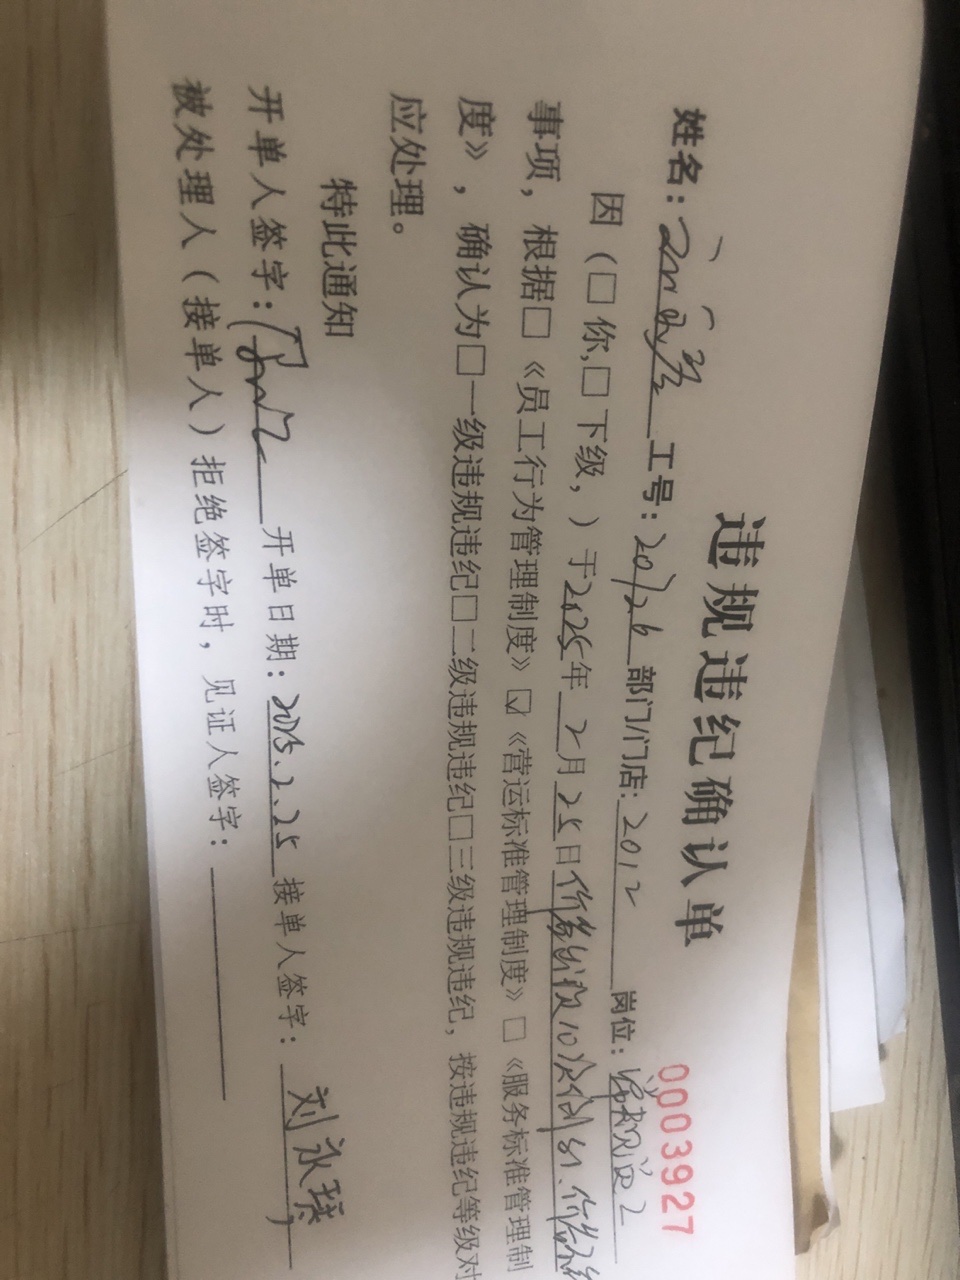 违规违纪确认单
0003927
姓名： 工号：20126 部门/门店：2012 岗位：
因（□你，□下级，）于2025年2月25日价签
事项，根据□《员工行为管理制度》☑《营运标准管理制度》□《服务标准管理制
度》，确认为□一级违规违纪□二级违规违纪□三级违规违纪，按违规违纪等级对
应处理。
特此通知
开单人签字： 开单日期：2025.2.25 接单人签字：刘永瑛
被处理人（接单人）拒绝签字时，见证人签字：